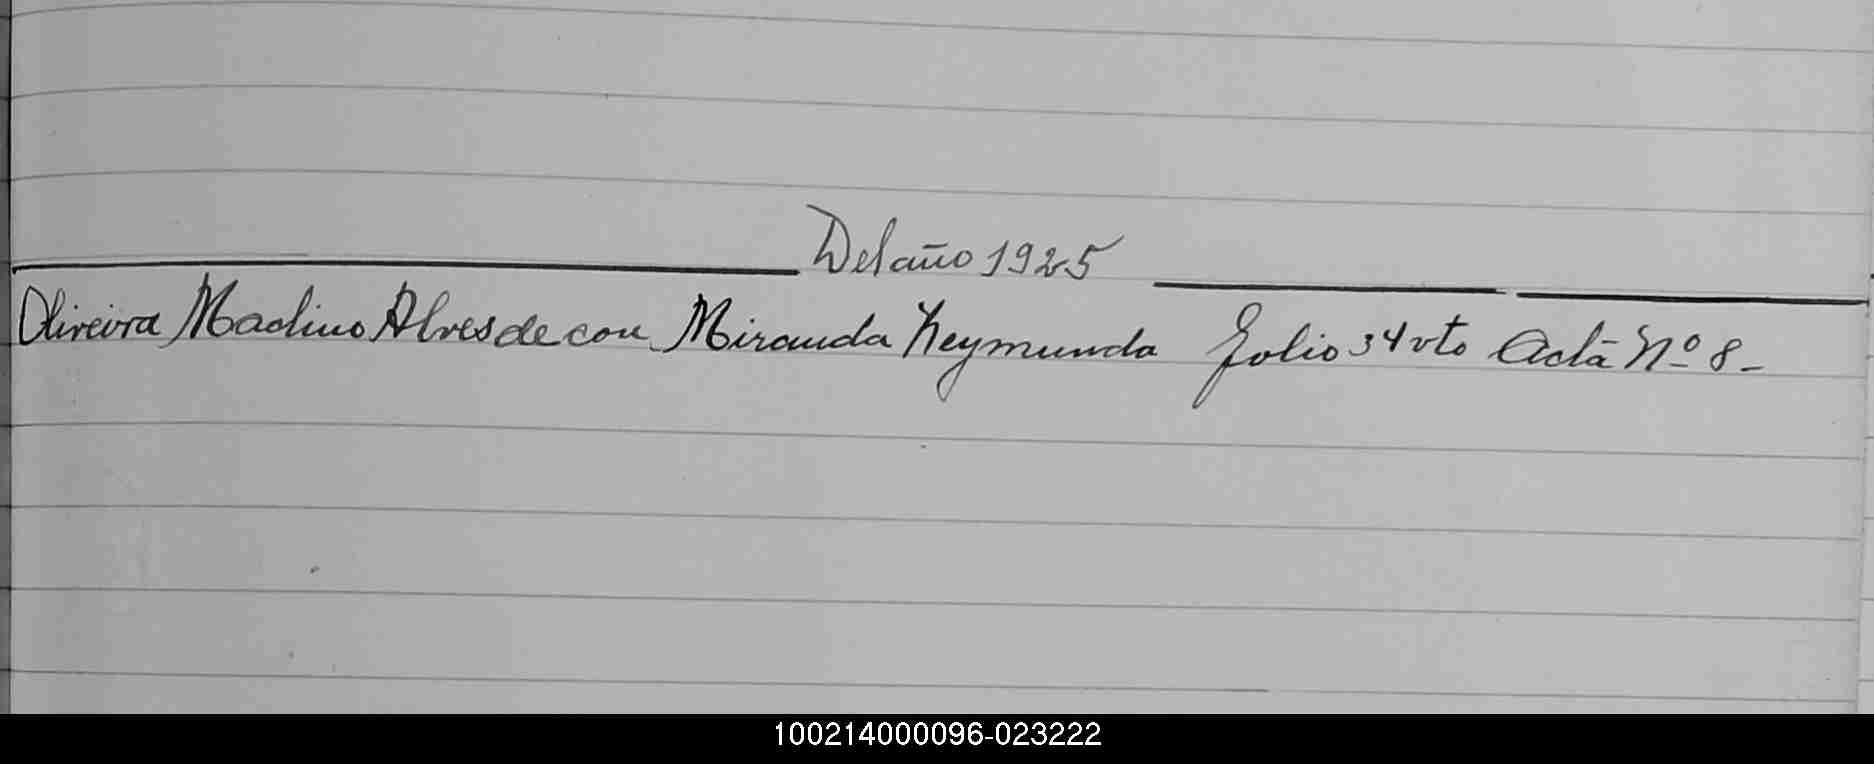 Del año 1925
Oliveira Maolino Alves de con Miranda Neymunda Folio 34 vto Acta Nº 8-
100214000096-023222